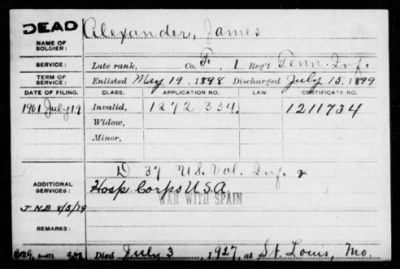 DEAD
NAME OF SOLDIER: Alexander, James
SERVICE: Late rank, Co. F. 1 Reg't Tenn. Inf.
TERM OF SERVICE: Enlisted May 19. 1898 Discharged July 15. 1899
DATE OF FILING. CLASS. APPLICATION NO. LAW. CERTIFICATE NO.
1901 July 19 Invalid, 1272 334. 1211734
Widow,
Minor,
D 37 U.S. Vol. Inf. &
ADDITIONAL SERVICES: Hosp. Corps U.S.A.
WAR WITH SPAIN
REMARKS:
Died July 3, 1927, at St. Louis, Mo.